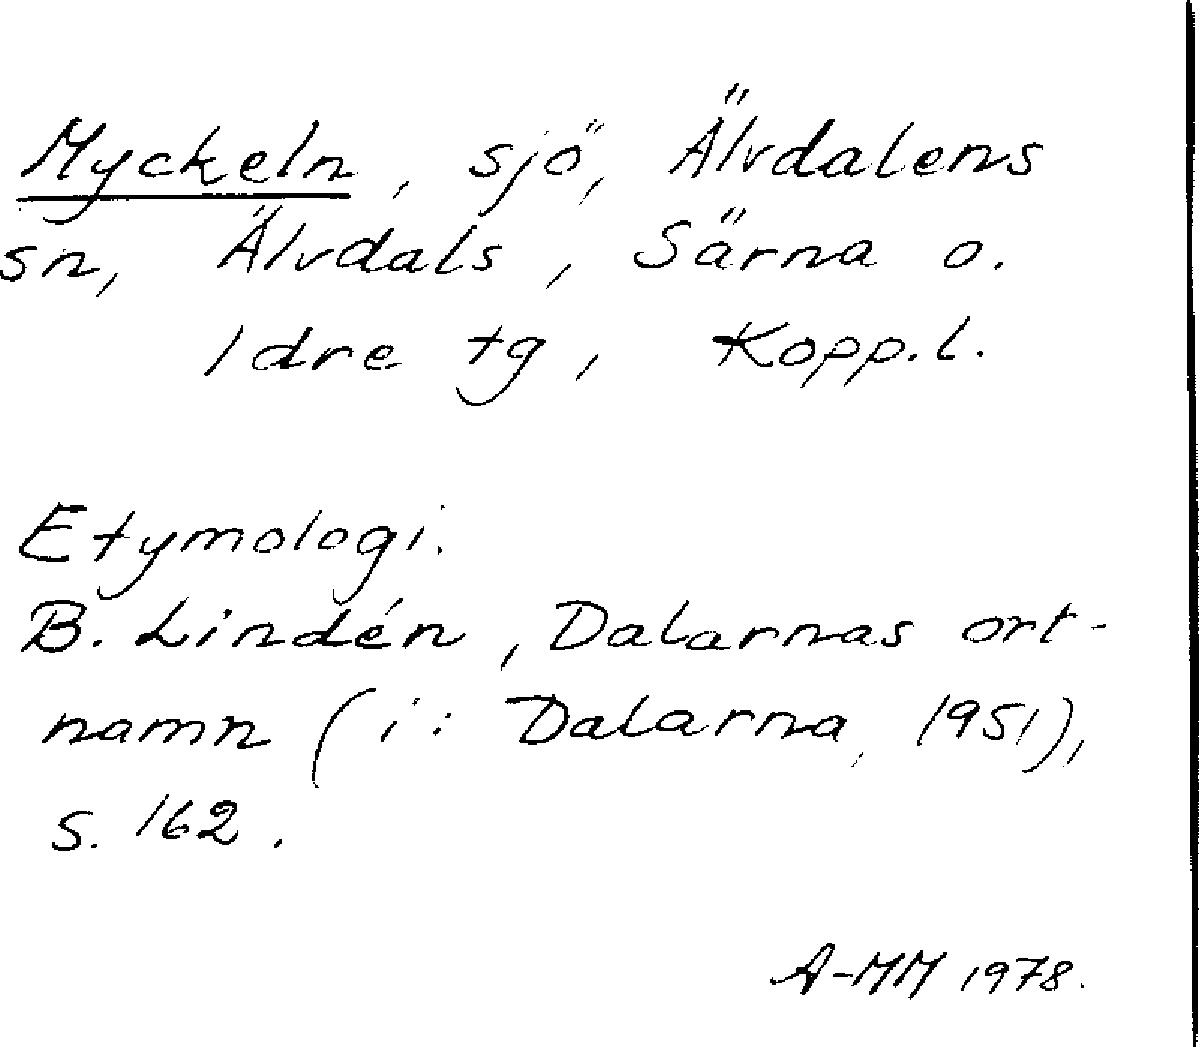 Myckeln, sjö, Älvdalens
sn, Älvdals, Särna o.
Idre tg, Kopp.l.
Etymologi.
B. Lindén, Dalarnas ort-
namn (i: Dalarna, 1951),
s. 162.
A-MM 1978.